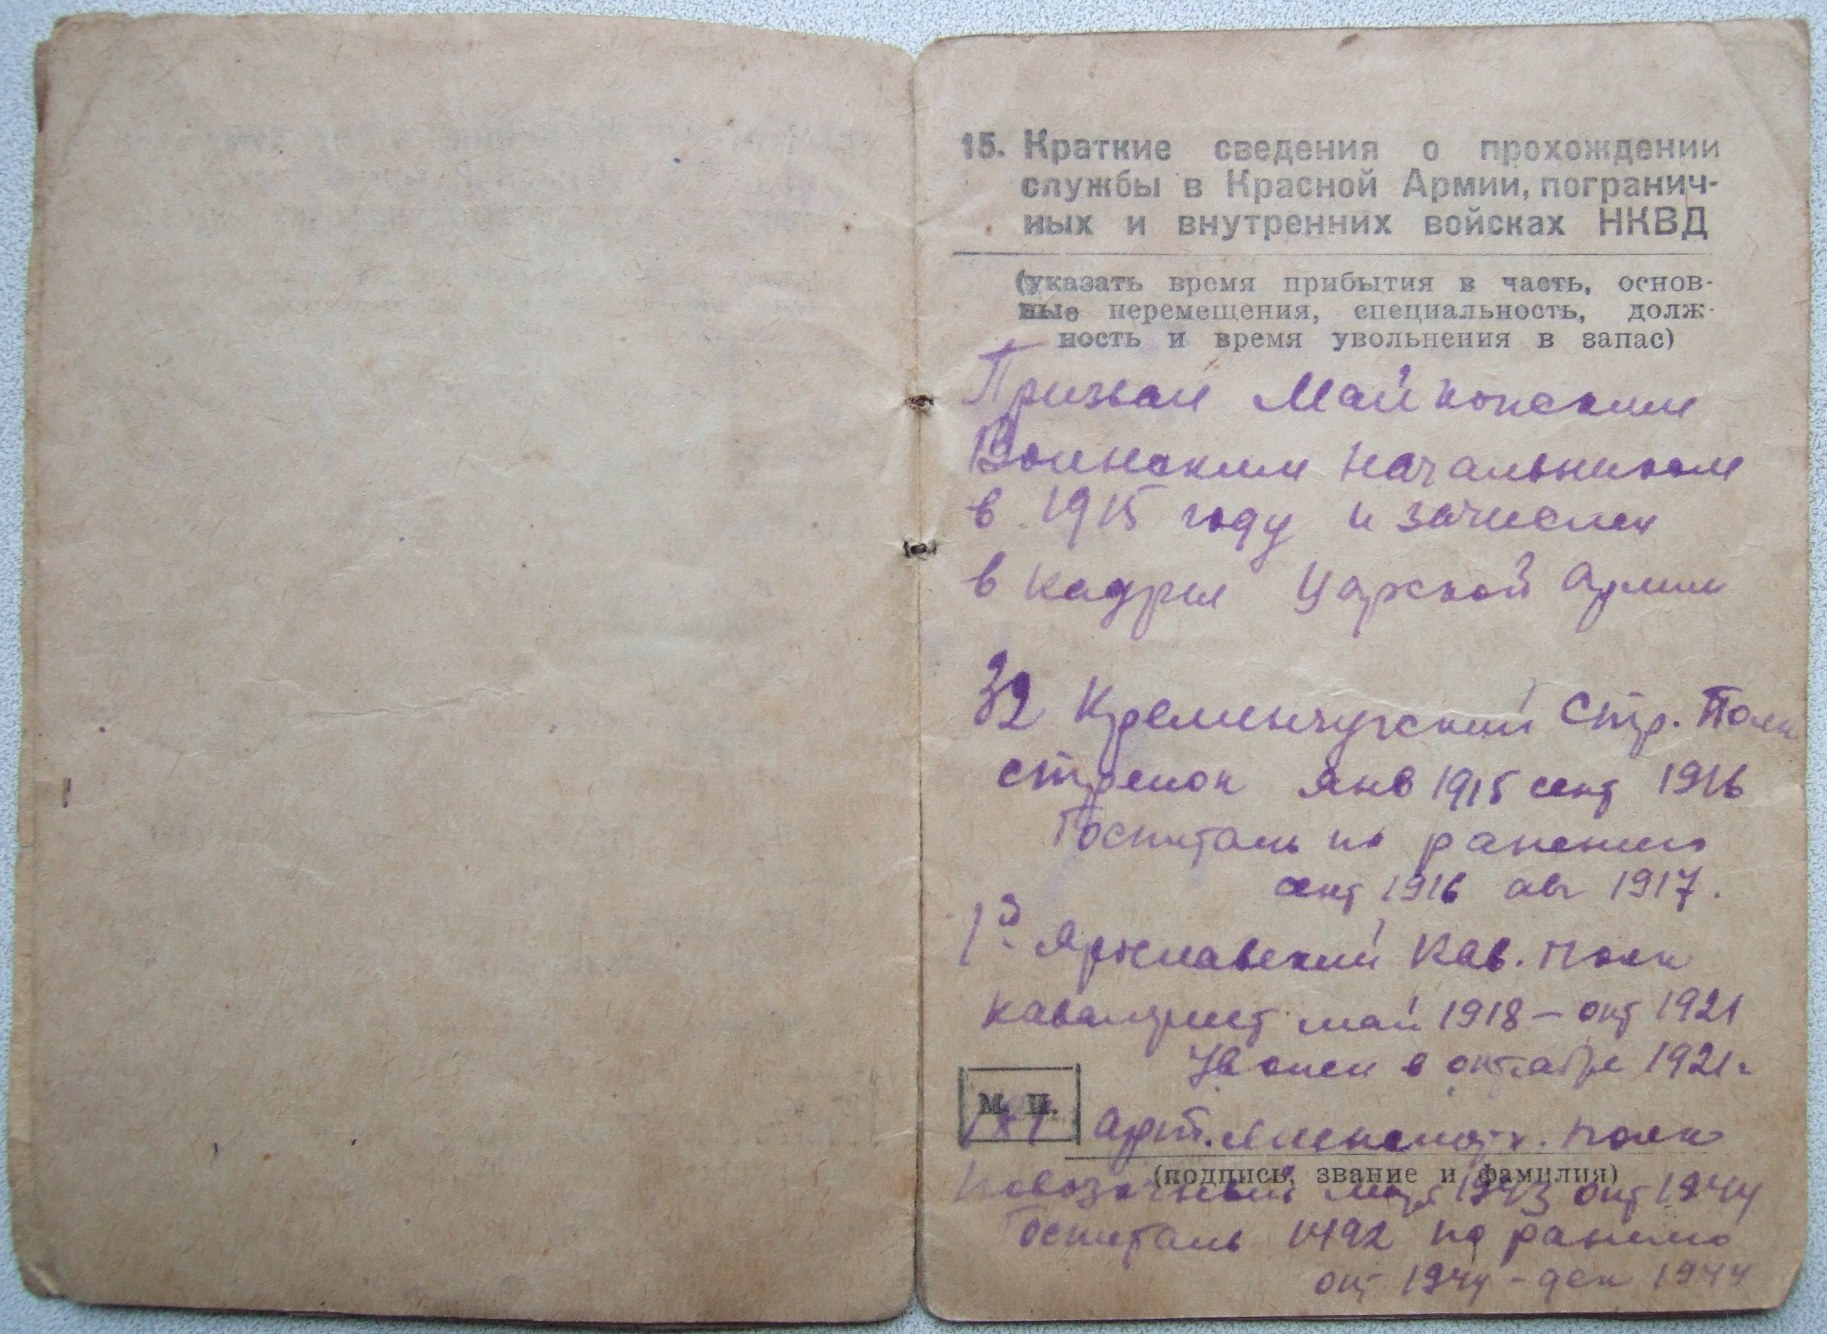 15. Краткие сведения о прохождении
службы в Красной Армии, погранич-
ных и внутренних войсках НКВД
(указать время прибытия в часть, основ-
ные перемещения, специальность, долж-
ность и время увольнения в запас)
Призван Майкопским
Воинским Начальником
в 1915 году и зачислен
в кадры Царской Армии
32 Кременчугский Стр. Полк
стрелок янв 1915 сент 1916
Госпиталь по ранению
сент 1916 авг 1917.
1й Ярославский Кав. полк
кавалерист май 1918 - окт 1921
Уволен в октябре 1921 г
М. П.
Арт. полк
(подпись, звание и фамилия)
Повозочный 1943 окт 1944
Госпиталь 1492 по ранению
окт 1944 - дек 1944